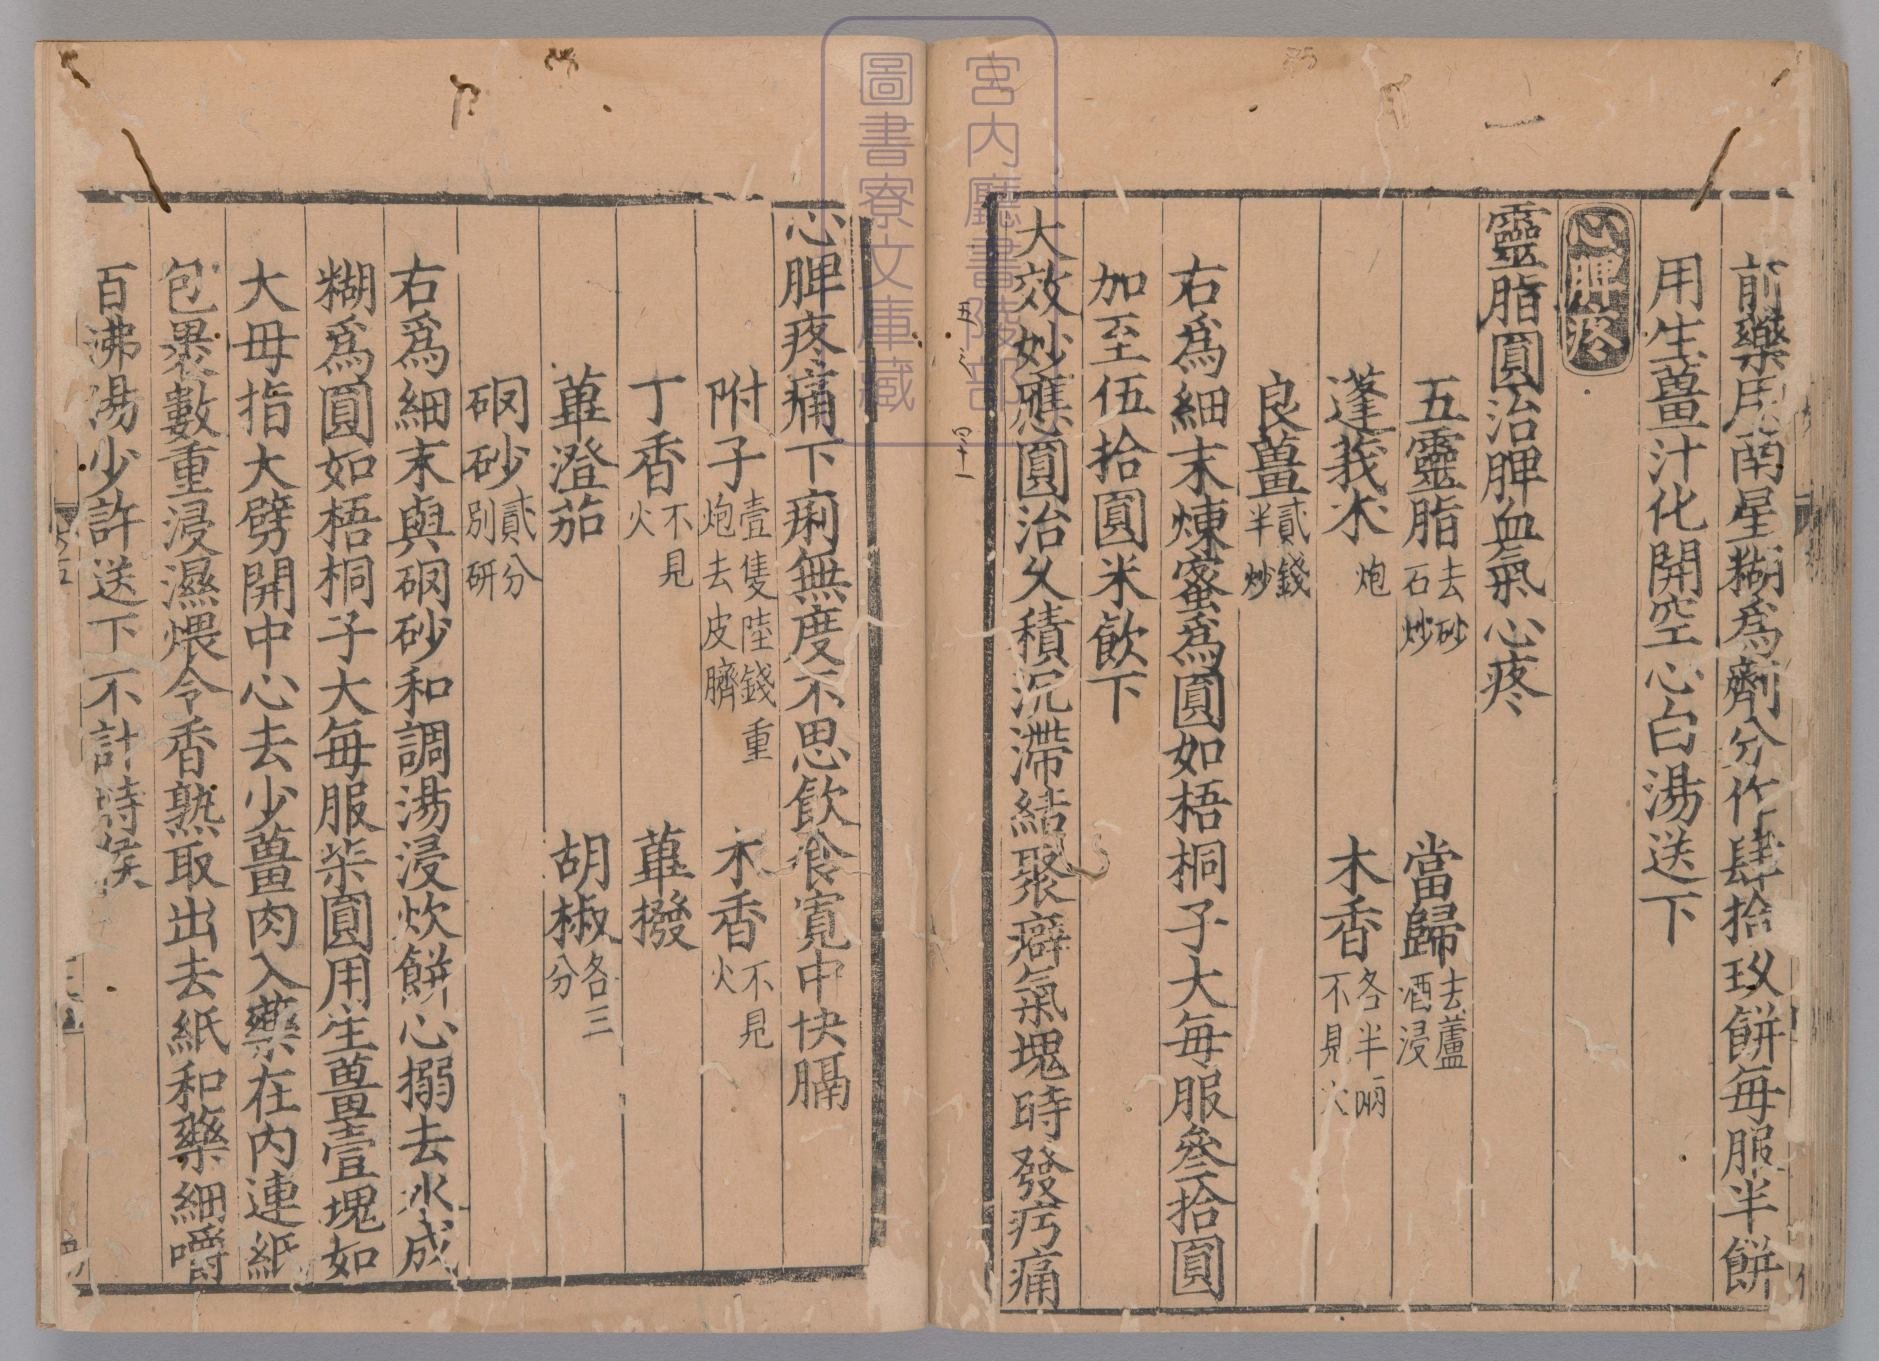 前藥用南星糊爲劑分作肆拾玖餅每服半餅
用生薑汁化開空心白湯送下
心脾疼
靈脂圓治脾血氣心疼
五靈脂去砂石炒 當歸去蘆酒浸
蓬莪朮炮 木香各半兩不見火
良薑貳錢半炒
右爲細末煉蜜爲圓如梧桐子大每服叄拾圓
加至伍拾圓米飲下
大效妙應圓治久積沉滯結聚癖氣塊時發疞痛
心脾疼痛下痢無度不思飲食寬中快膈
附子壹隻陸錢重炮去皮臍 木香不見火
丁香不見火 蓽撥
蓽澄茄 胡椒各三分
硇砂貳分別研
右爲細末與硇砂和調湯浸炊餅心搦去水成
糊爲圓如梧桐子大每服柒圓用生薑壹塊如
大毋指大劈開中心去少薑肉入藥在內連紙
包裹數重浸濕煨令香熟取出去紙和藥細嚼
百沸湯少許送下不計時候
宮內廳書陵部
圖書寮文庫藏